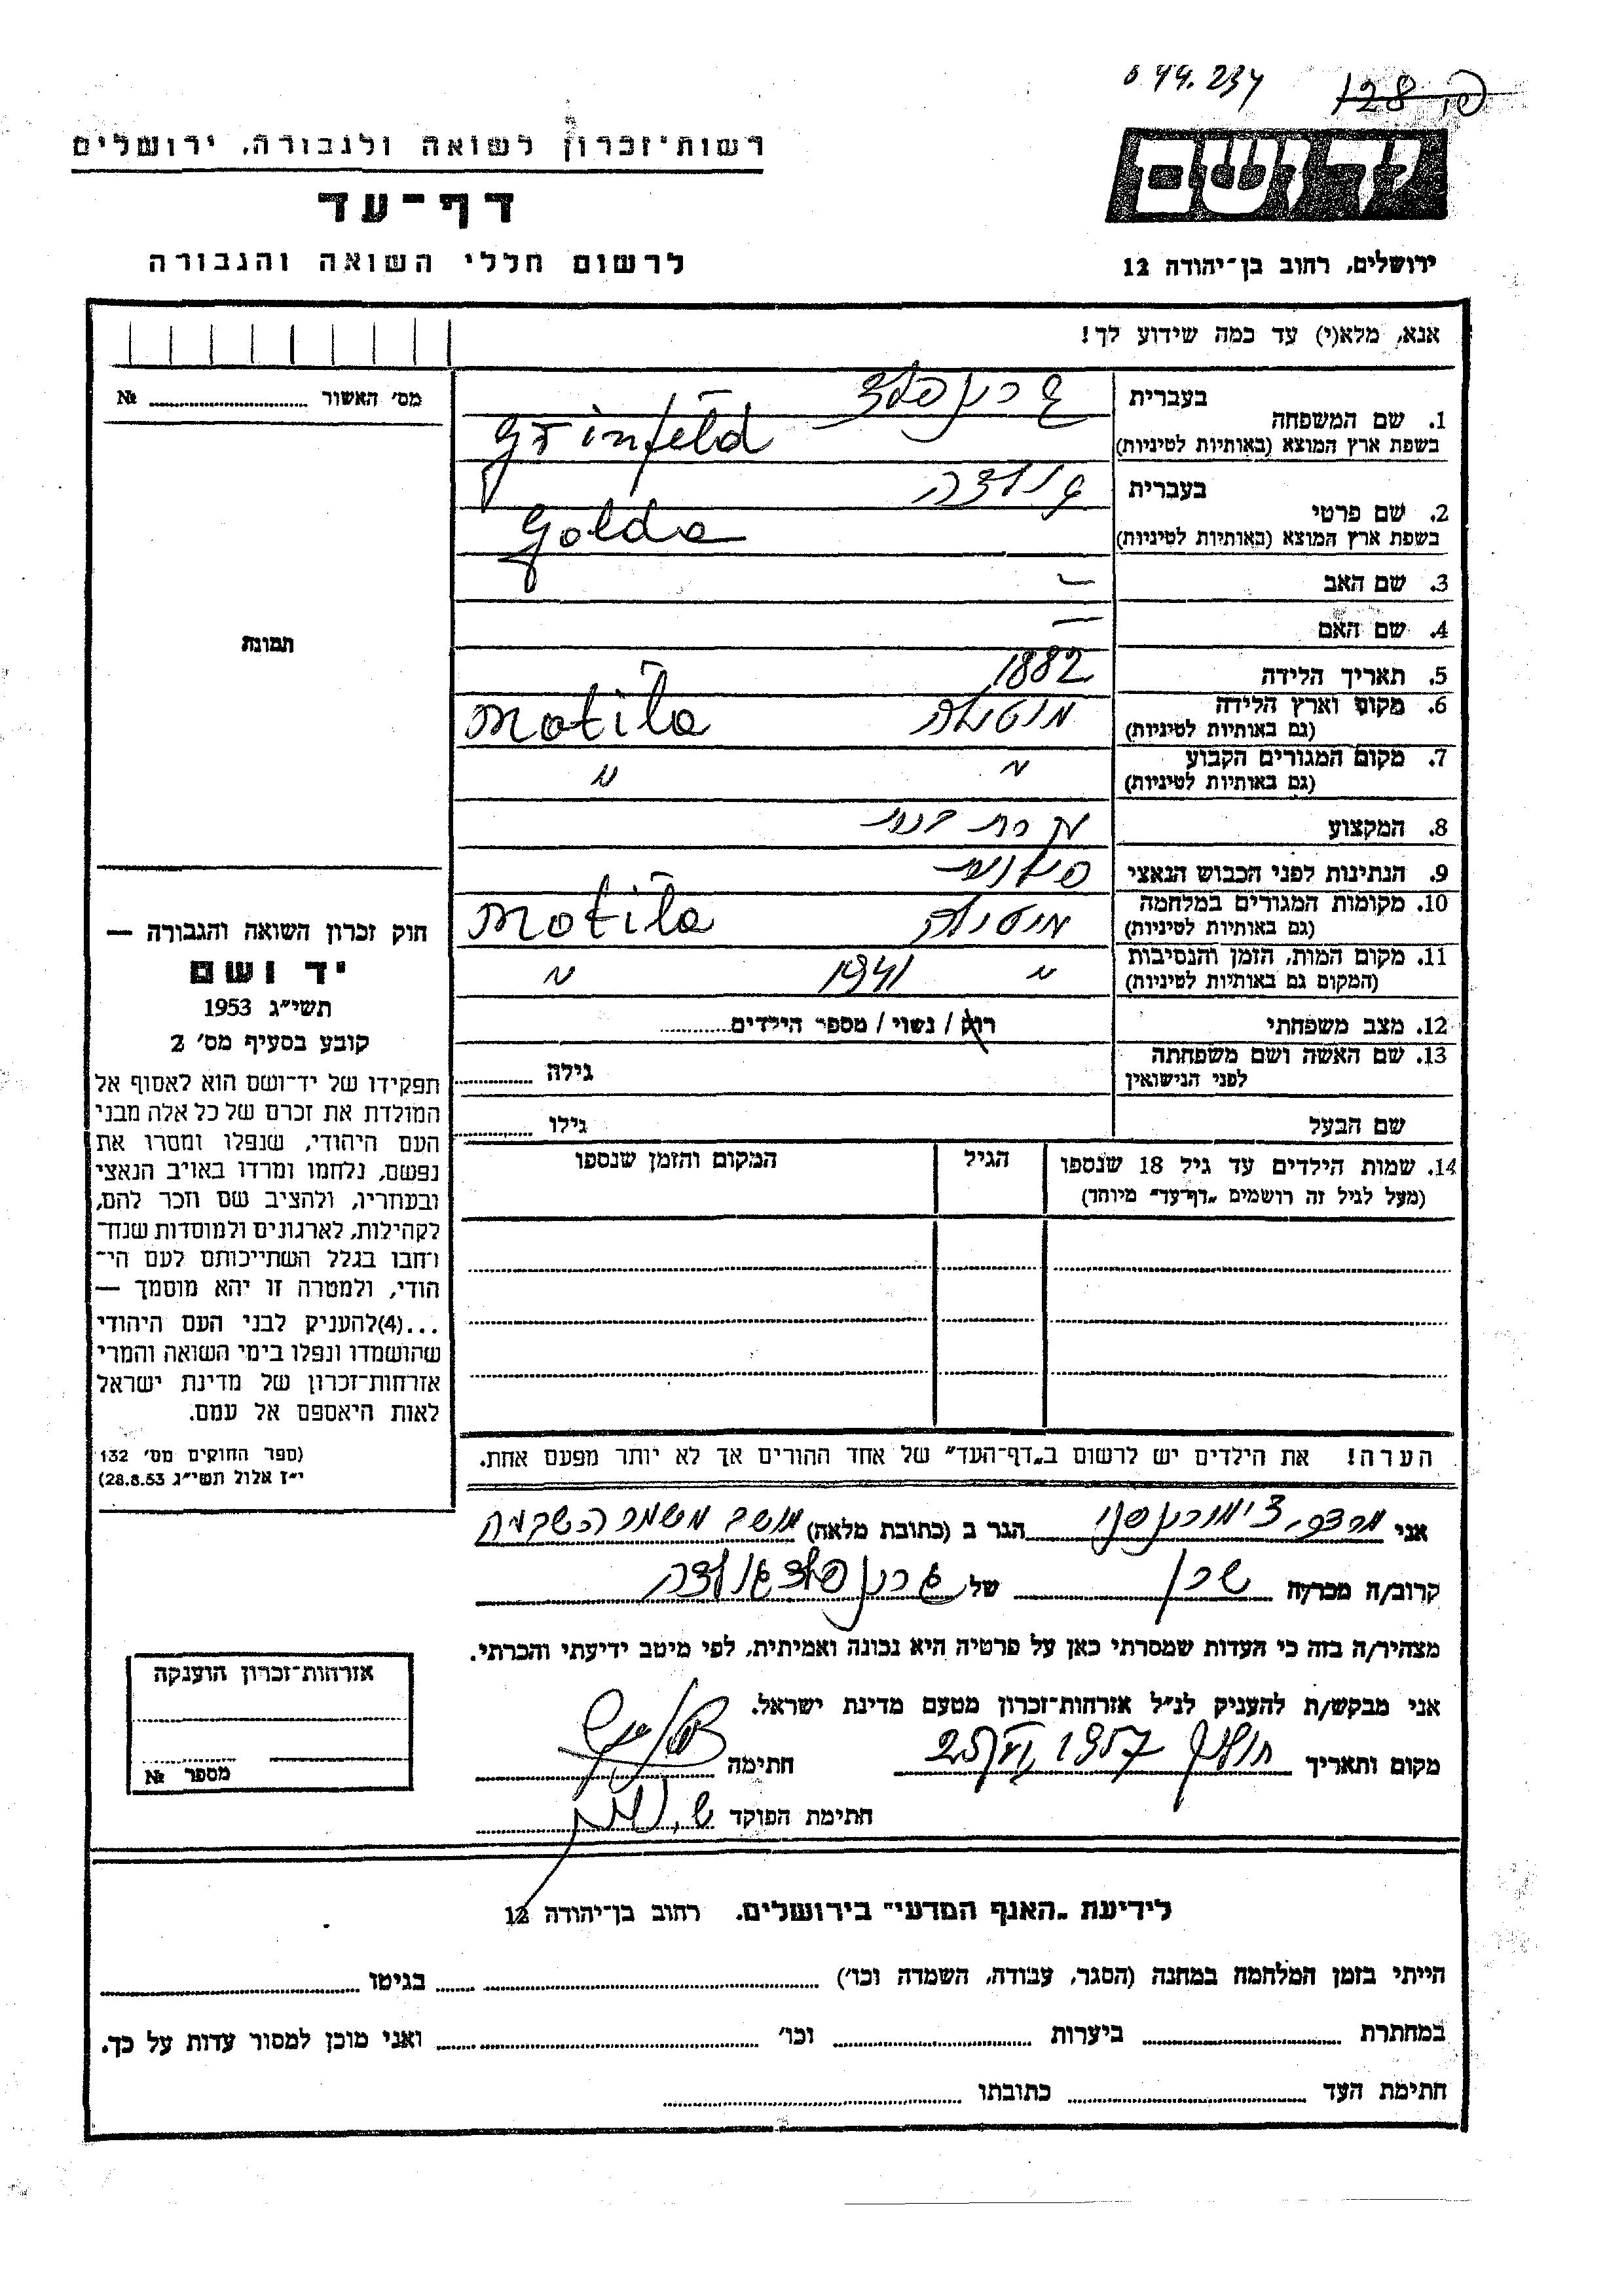 פ. 128
044.234
רשות־זכרון לשואה ולגבורה, ירושלים
יד ושם
דף־עד
לרשום חללי השואה והגבורה
ירושלים, רחוב בן־יהודה 12
אנא, מלא(י) עד כמה שידוע לך!
מס׳ האשור № 
1. שם המשפחה
בעברית גרינפלד
בשפת ארץ המוצא (באותיות לטיניות) Grinfeld
2. שם פרטי
בעברית גולדה
בשפת ארץ המוצא (באותיות לטיניות) Golda
3. שם האב —
4. שם האם —
5. תאריך הלידה 1882
6. מקום וארץ הלידה מוטולה Motila
(גם באותיות לטיניות)
7. מקום המגורים הקבוע " "
(גם באותיות לטיניות)
8. המקצוע עקרת בית
9. הנתינות לפני הכבוש הנאצי פולנית
10. מקומות המגורים במלחמה מוטולה Motila
(גם באותיות לטיניות)
11. מקום המות, הזמן והנסיבות " 1941 "
(המקום גם באותיות לטיניות)
12. מצב משפחתי רווק / נשוי / מספר הילדים
13. שם האשה ושם משפחתה
לפני הנישואין גילה
שם הבעל גילו
14. שמות הילדים עד גיל 18 שנספו
(מעל לגיל זה רושמים „דף־עד" מיוחד)
הגיל
המקום והזמן שנספו
הערה! את הילדים יש לרשום ב„דף־העד" של אחד ההורים אך לא יותר מפעם אחת.
תמונה
חוק זכרון השואה והגבורה —
יד ושם
תשי״ג 1953
קובע בסעיף מס׳ 2
תפקידו של יד־ושם הוא לאסוף אל
המולדת את זכרם של כל אלה מבני
העם היהודי, שנפלו ומסרו את
נפשם, נלחמו ומרדו באויב הנאצי
ובעוזריו, ולהציב שם וזכר להם,
לקהילות, לארגונים ולמוסדות שנח־
רבו בגלל השתייכותם לעם הי־
הודי, ולמטרה זו יהא מוסמך —
...(4)להעניק לבני העם היהודי
שהושמדו ונפלו בימי השואה והמרי
אזרחות־זכרון של מדינת ישראל
לאות היאספם אל עמם.
(ספר החוקים מס׳ 132
י״ז אלול תשי״ג 28.8.53)
אני מרדכי הגר ב (כתובת מלאה) מושב משמר השבעה
קרוב/ה מכר/ה שכן של גרינפלד גולדה
מצהיר/ה בזה כי העדות שמסרתי כאן על פרטיה היא נכונה ואמיתית, לפי מיטב ידיעתי והכרתי.
אני מבקש/ת להעניק לנ״ל אזרחות־זכרון מטעם מדינת ישראל.
מקום ותאריך 1957 חתימה
חתימת הפוקד
אזרחות־זכרון הוענקה
מספר №
לידיעת „האגף המדעי" בירושלים. רחוב בן־יהודה 12
הייתי בזמן המלחמה במחנה (הסגר, עבודה, השמדה וכו׳) בגיטו
במחתרת ביערות וכו׳ ואני מוכן למסור עדות על כך.
חתימת העד כתובתו